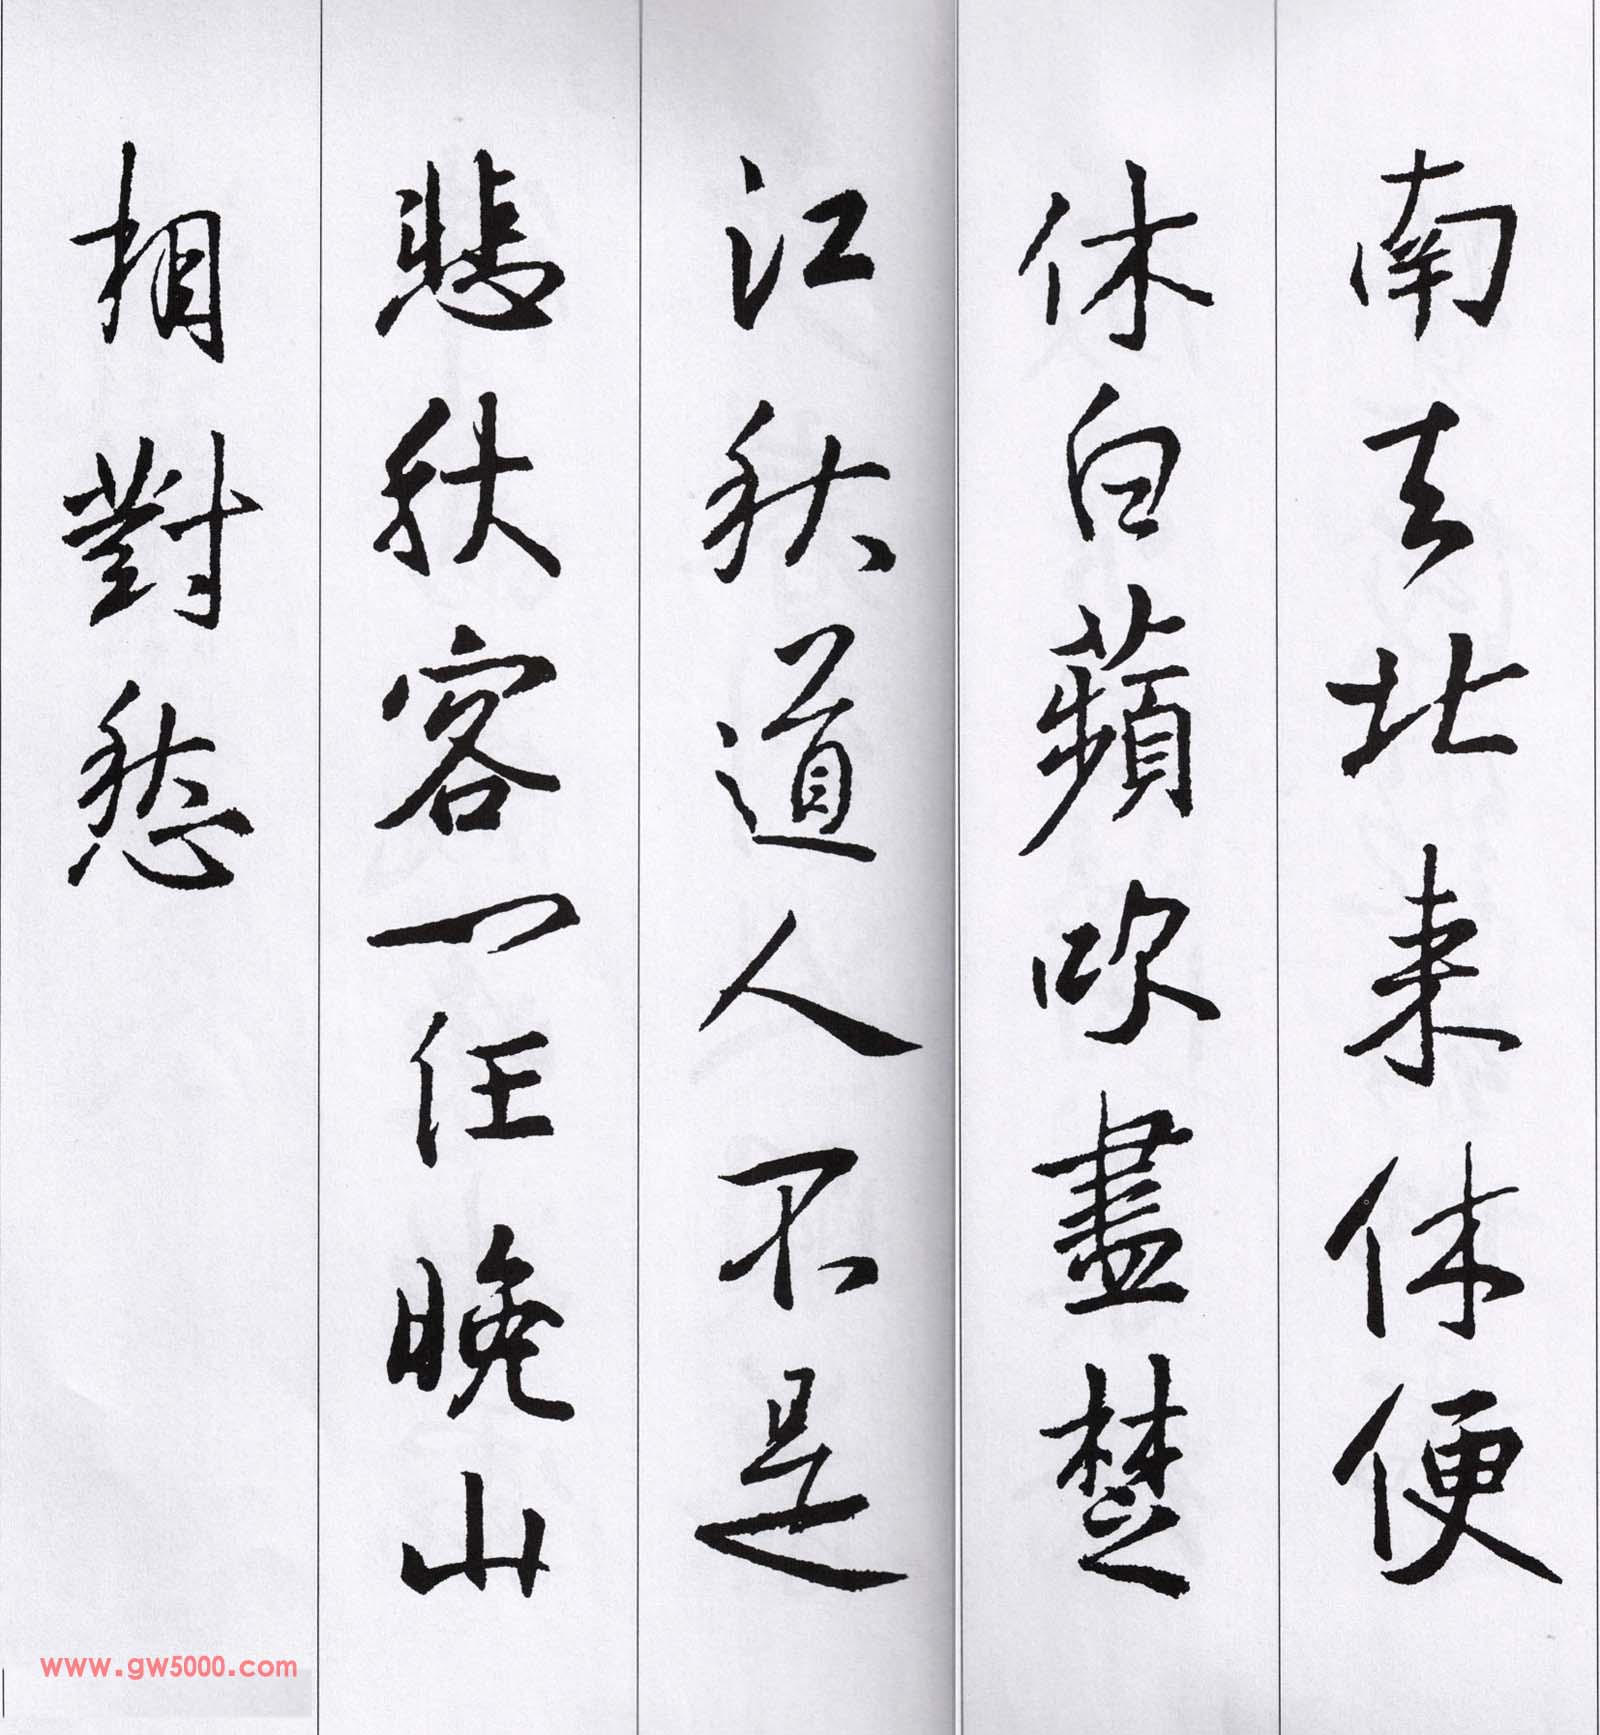 南去北来休便
休白蘋吹盡楚
江秋道人不是
悲秋客一任晚
山相對愁
www.gw5000.com